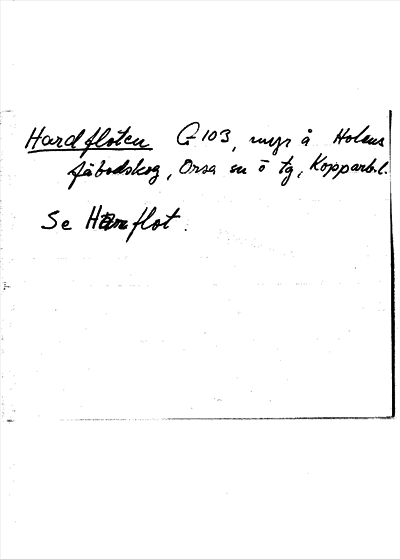 Hardfloten G 103, myr å Holens
fäbodskog, Orsa sn o tg, Kopparb.l.
Se Hamflot.